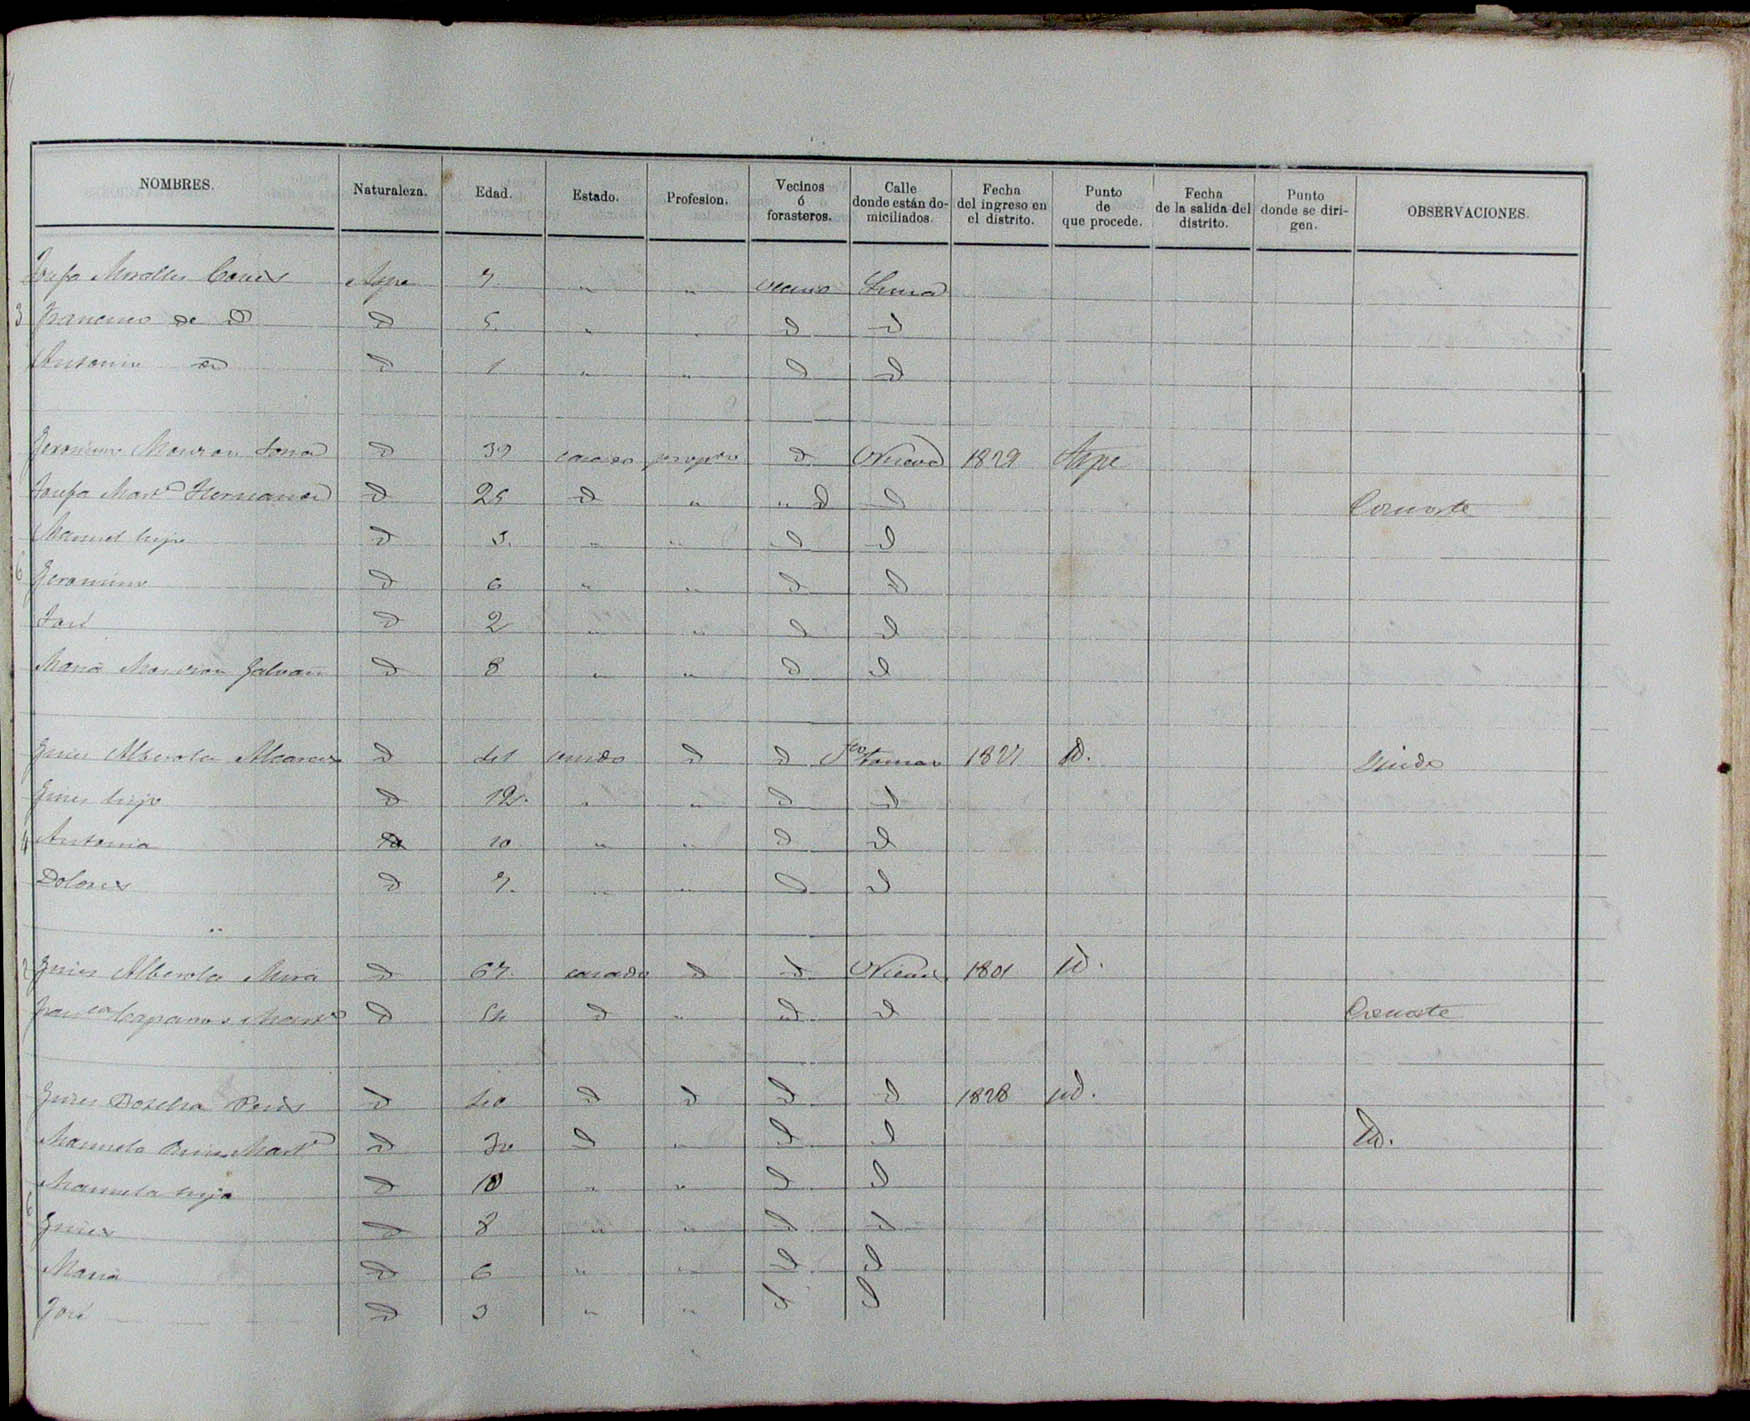 NOMBRES. Naturaleza. Edad. Estado. Profesion. Vecinos ó forasteros. Calle donde están domiciliados. Fecha del ingreso en el distrito. Punto de que procede. Fecha de la salida del distrito. Punto donde se dirigen. OBSERVACIONES.
Aspe 7 " " vecino
3 Francisco de D D 5 " " D D
Antonio D D 1 " " D D
Geronimo D 32 casado D Nueva 1829 Aspe
D 25 D " " D D Consorte
Manuel hijo D 3. " " D D
6 Geronimo D 6 " " D D
José D 2 " " D D
Maria Galvañ D 8 " " D D
Gines Alberola Alcaraz D 41 D D Sto Tomas 1827 D. Viudo
Gines hijo D 12. " " D D
4 Antonia D 10 " " D D
Dolores D 7. " " D D
2 Gines Alberola Mira D 67. casado D D Nueva 1801 id.
D D " D D Consorte
Gines Botella D 40 D D D D 1828 id.
Manuela D D " D D Id.
Manuela hija D 10 " " D D
6 Gines D 8 " " D D
Maria D 6 " " D D
José D 3 " " D D